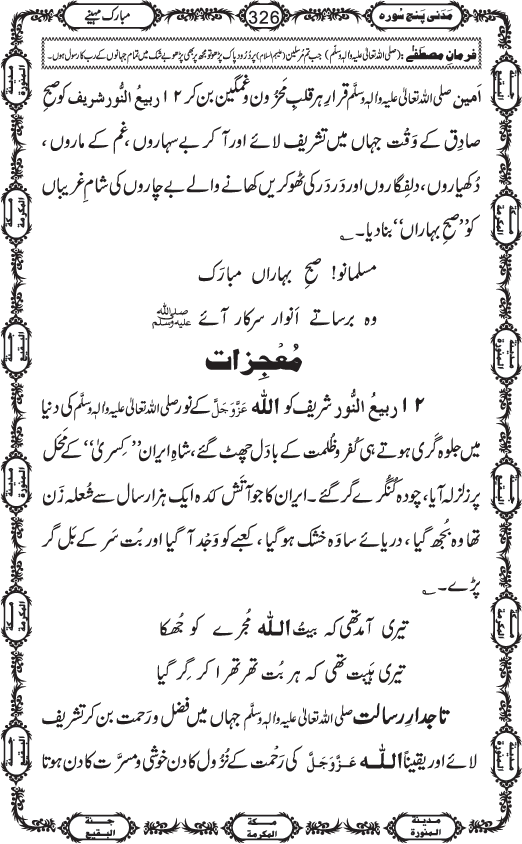 مَدَنی پنج سورہ
326
مبارک مہینے
فرمانِ مصطَفٰے : (صلی اللہ تعالیٰ علیہ والہٖ وسلّم) جب تم مُرسلین (علیہم السلام) پر دُرُود پاک پڑھو تو مجھ پر بھی پڑھو بے شک میں تمام جہانوں کے رب کا رسول ہوں۔
اَمین صلی اللہ تعالیٰ علیہ والہٖ وسلّم قرارِ ہر قلبِ مَحْزُون و غمگین بن کر ۱۲ ربیعُ النُّور شریف کو صبحِ
صادِق کے وَقت جہاں میں تشریف لائے اور آ کر بے سہاروں، غم کے ماروں،
دُکھیاروں، دلفِگاروں اور دَر دَر کی ٹھوکریں کھانے والے بے چاروں کی شامِ غریباں
کو ’’صبحِ بہاراں‘‘ بنا دیا۔ ؎
مسلمانو! صبحِ بہاراں مبارَک
وہ برساتے اَنوار سرکار آئے صلی اللہ علیہ وسلم
مُعْجِزات
۱۲ ربیعُ النُّور شریف کو اللہ عَزَّوَجَلَّ کے نور صلی اللہ تعالیٰ علیہ والہٖ وسلّم کی دنیا
میں جلوہ گری ہوتے ہی کُفْر و ظُلمت کے بادَل چھٹ گئے، شاہِ ایران ’’کِسریٰ‘‘ کے مَحَل
پر زلزلہ آیا، چودہ کُنگُرے گر گئے۔ ایران کا جو آتَش کدہ ایک ہزار سال سے شُعلہ زَن
تھا وہ بُجھ گیا، دریائے ساوَہ خشک ہو گیا، کعبے کو وَجْد آ گیا اور بُت سَر کے بَل گر
پڑے۔ ؎
تیری آمد تھی کہ بیتُ اللہ مُجرے کو جُھکا
تیری ہَیبت تھی کہ ہر بُت تھرتھرا کر گِر گیا
تاجدارِ رسالت صلی اللہ تعالیٰ علیہ والہٖ وسلّم جہاں میں فضل و رَحمت بن کر تشریف
لائے اور یقیناً اللہ عَزَّوَجَلَّ کی رَحْمت کے نُزُول کا دن خوشی و مسرَّت کا دن ہوتا
مدینۃ المنورۃ
جنۃ البقیع
مکۃ المکرمۃ
مکۃ المکرمۃ
جنۃ البقیع
مدینۃ المنورۃ
مدینۃ المنورۃ
جنۃ البقیع
مکۃ المکرمۃ
مکۃ المکرمۃ
جنۃ البقیع
مدینۃ المنورۃ
جنۃ البقیع
مکۃ المکرمۃ
مدینۃ المنورۃ